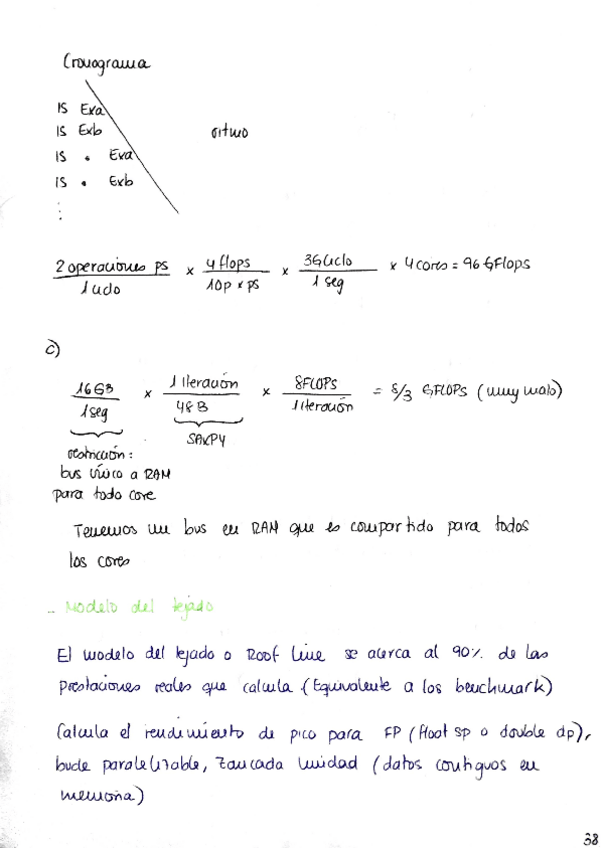 Cronograma
IS Exa
IS Exb ritmo
IS • Exa
IS • Exb
⋮
2 operaciones ps / 1 ciclo × 4 flops / 1 op × ps × 3 G ciclo / 1 seg × 4 cores = 96 GFlops
c)
16 GB / 1 seg × 1 Iteración / 48 B × 8 FLOPs / 1 iteración = 8/3 GFLOPs (muy malo)
SAXPY
restricción:
bus único a RAM
para todo core
Tenemos un bus en RAM que es compartido para todos
los cores
– Modelo del tejado
El modelo del tejado o Roof line se acerca al 90% de las
prestaciones reales que calcula (Equivalente a los benchmark)
Calcula el rendimiento de pico para FP (float sp o double dp),
bucle paralelizable, zancada unidad (datos contiguos en
memoria)
38